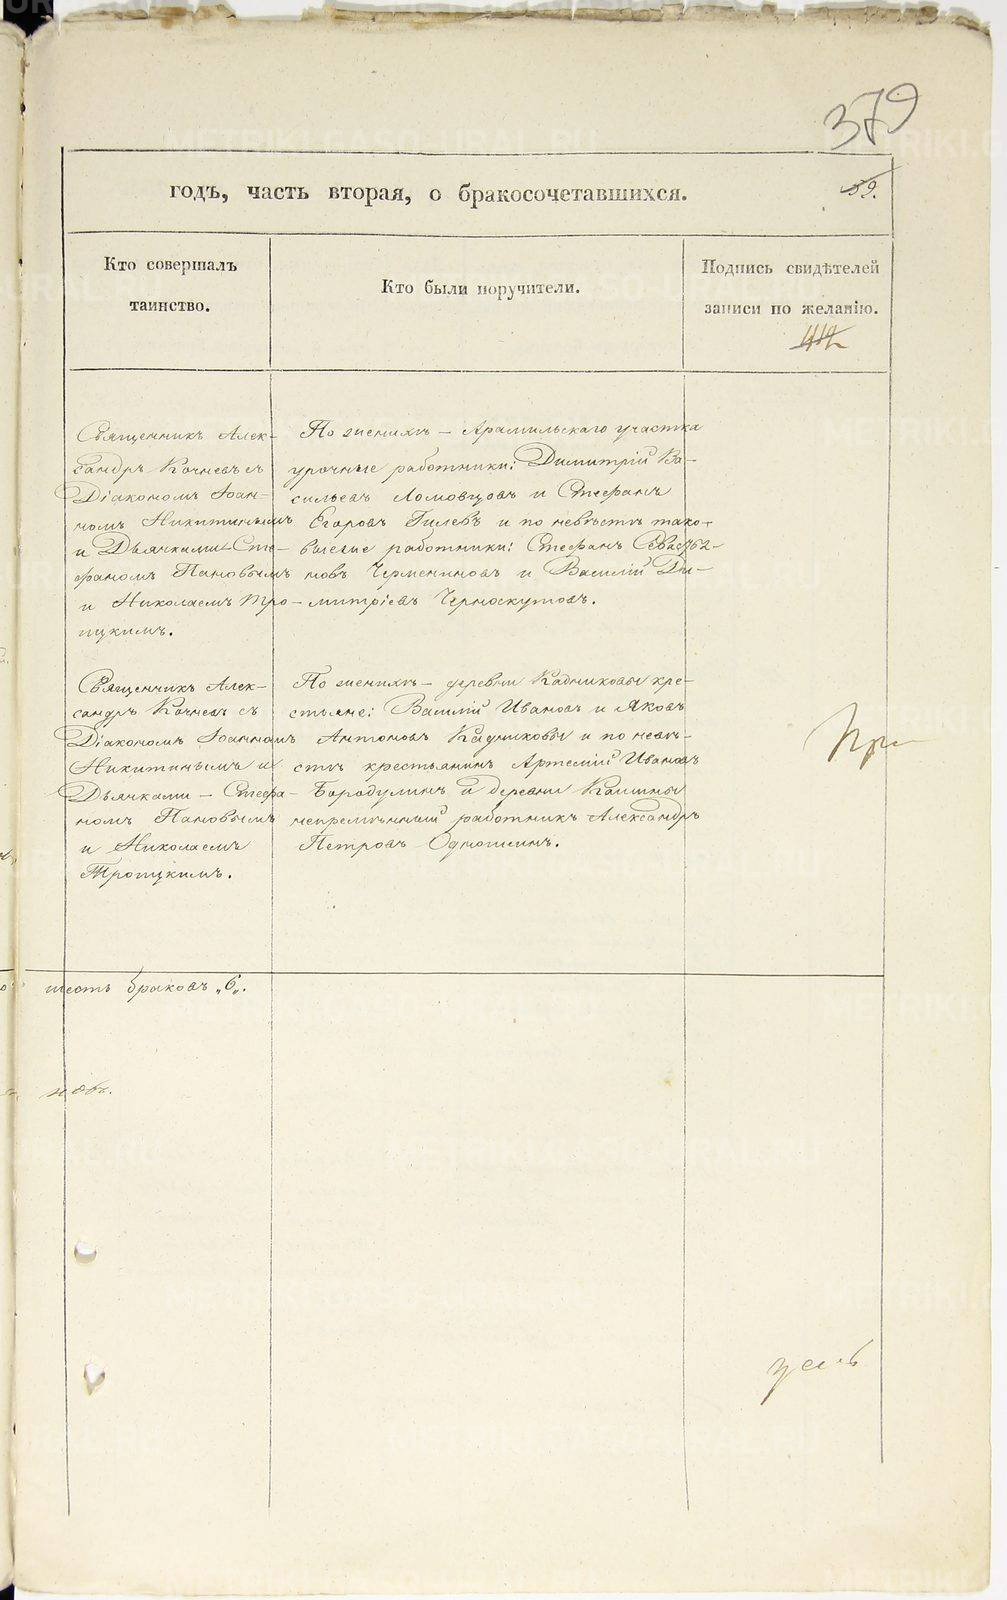 379
годъ, часть вторая, о бракосочетавшихся.
59.
Кто совершалъ
таинство.
Кто были поручители.
Подпись свидѣтелей
записи по желанію.
Священникъ Алек-
сандръ Кочневъ съ
Діакономъ Іоан-
номъ Никитинымъ
и Дьячками Сте-
фаномъ Пановымъ
и Николаемъ Тро-
ицкимъ.
По женихѣ – Арамильскаго участка
урочные работники: Димитрій Ва-
сильевъ Ломовцовъ и Стефанъ
Егоровъ Гилевъ и по невѣстѣ тако-
вые же работники: Стефанъ
новъ Черменинова и Василій Ди-
митріевъ Черноскутовъ.
Священникъ Алек-
сандръ Кочневъ съ
Діакономъ Іоанномъ
Никитинымъ и
Дьячками – Стефа-
номъ Пановымъ
и Николаемъ
Троицкимъ.
По женихѣ – деревни Кадниковой кре-
стьяне: Василій Ивановъ и Яковъ
Антоновъ Кадниковы и по невѣ-
стѣ крестьянинъ Артемій Ивановъ
Бородулинъ и деревни
непремѣнный работникъ Александръ
Петровъ Одношеинъ.
При
шесть браковъ „6„.
METRIKI.GASO-URAL.RU